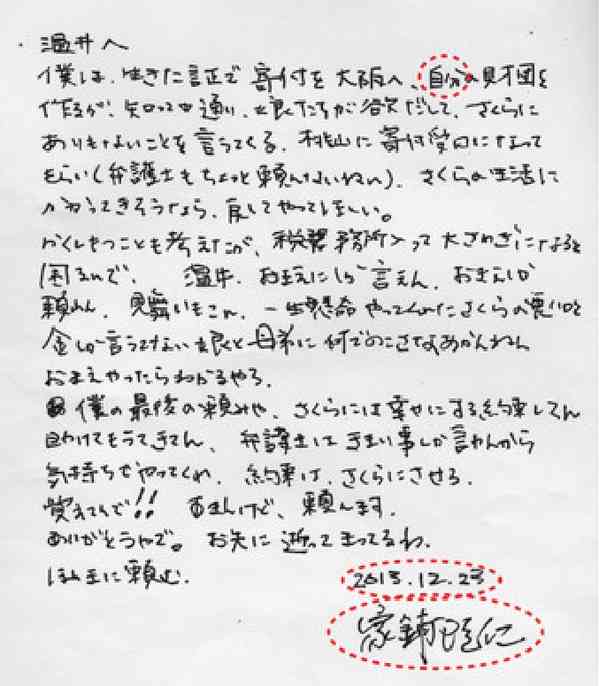 温井へ
僕は、生きた証正で寄付を大阪へ、自分の財団を
作るが、知っての通り、娘たちが欲だして、さくらに
ありもないことを言うてくる。桃山に寄付受口になって
もらい(弁護士もちょっと頼んないねん)、さくらの生活に
かかってきそうなら、戻してやってほしい。
かくしもつことも考えたが、税務署 務所入って大さわぎになると
困るんで、温井、おまえにしか言えん、おまえしか
頼めん、見舞いもこん、一生懸命やってくれたさくらの悪口と
金しか言うてない娘と母弟に何でのこさなあかんねん
おまえやったらわかるやろ。
僕の最後の頼みや、さくらには幸せにする約束してん
助けてもうてきてん、弁護士はきまい事しか言わんから
気持ちでやってくれ、約束は、さくらにさせろ。
覚えてんで!! すまんけど、頼んます。
ありがとうやで。お先に逝って まってるわ。
ほんまに頼む。
2013.12.23
家鋪隆仁